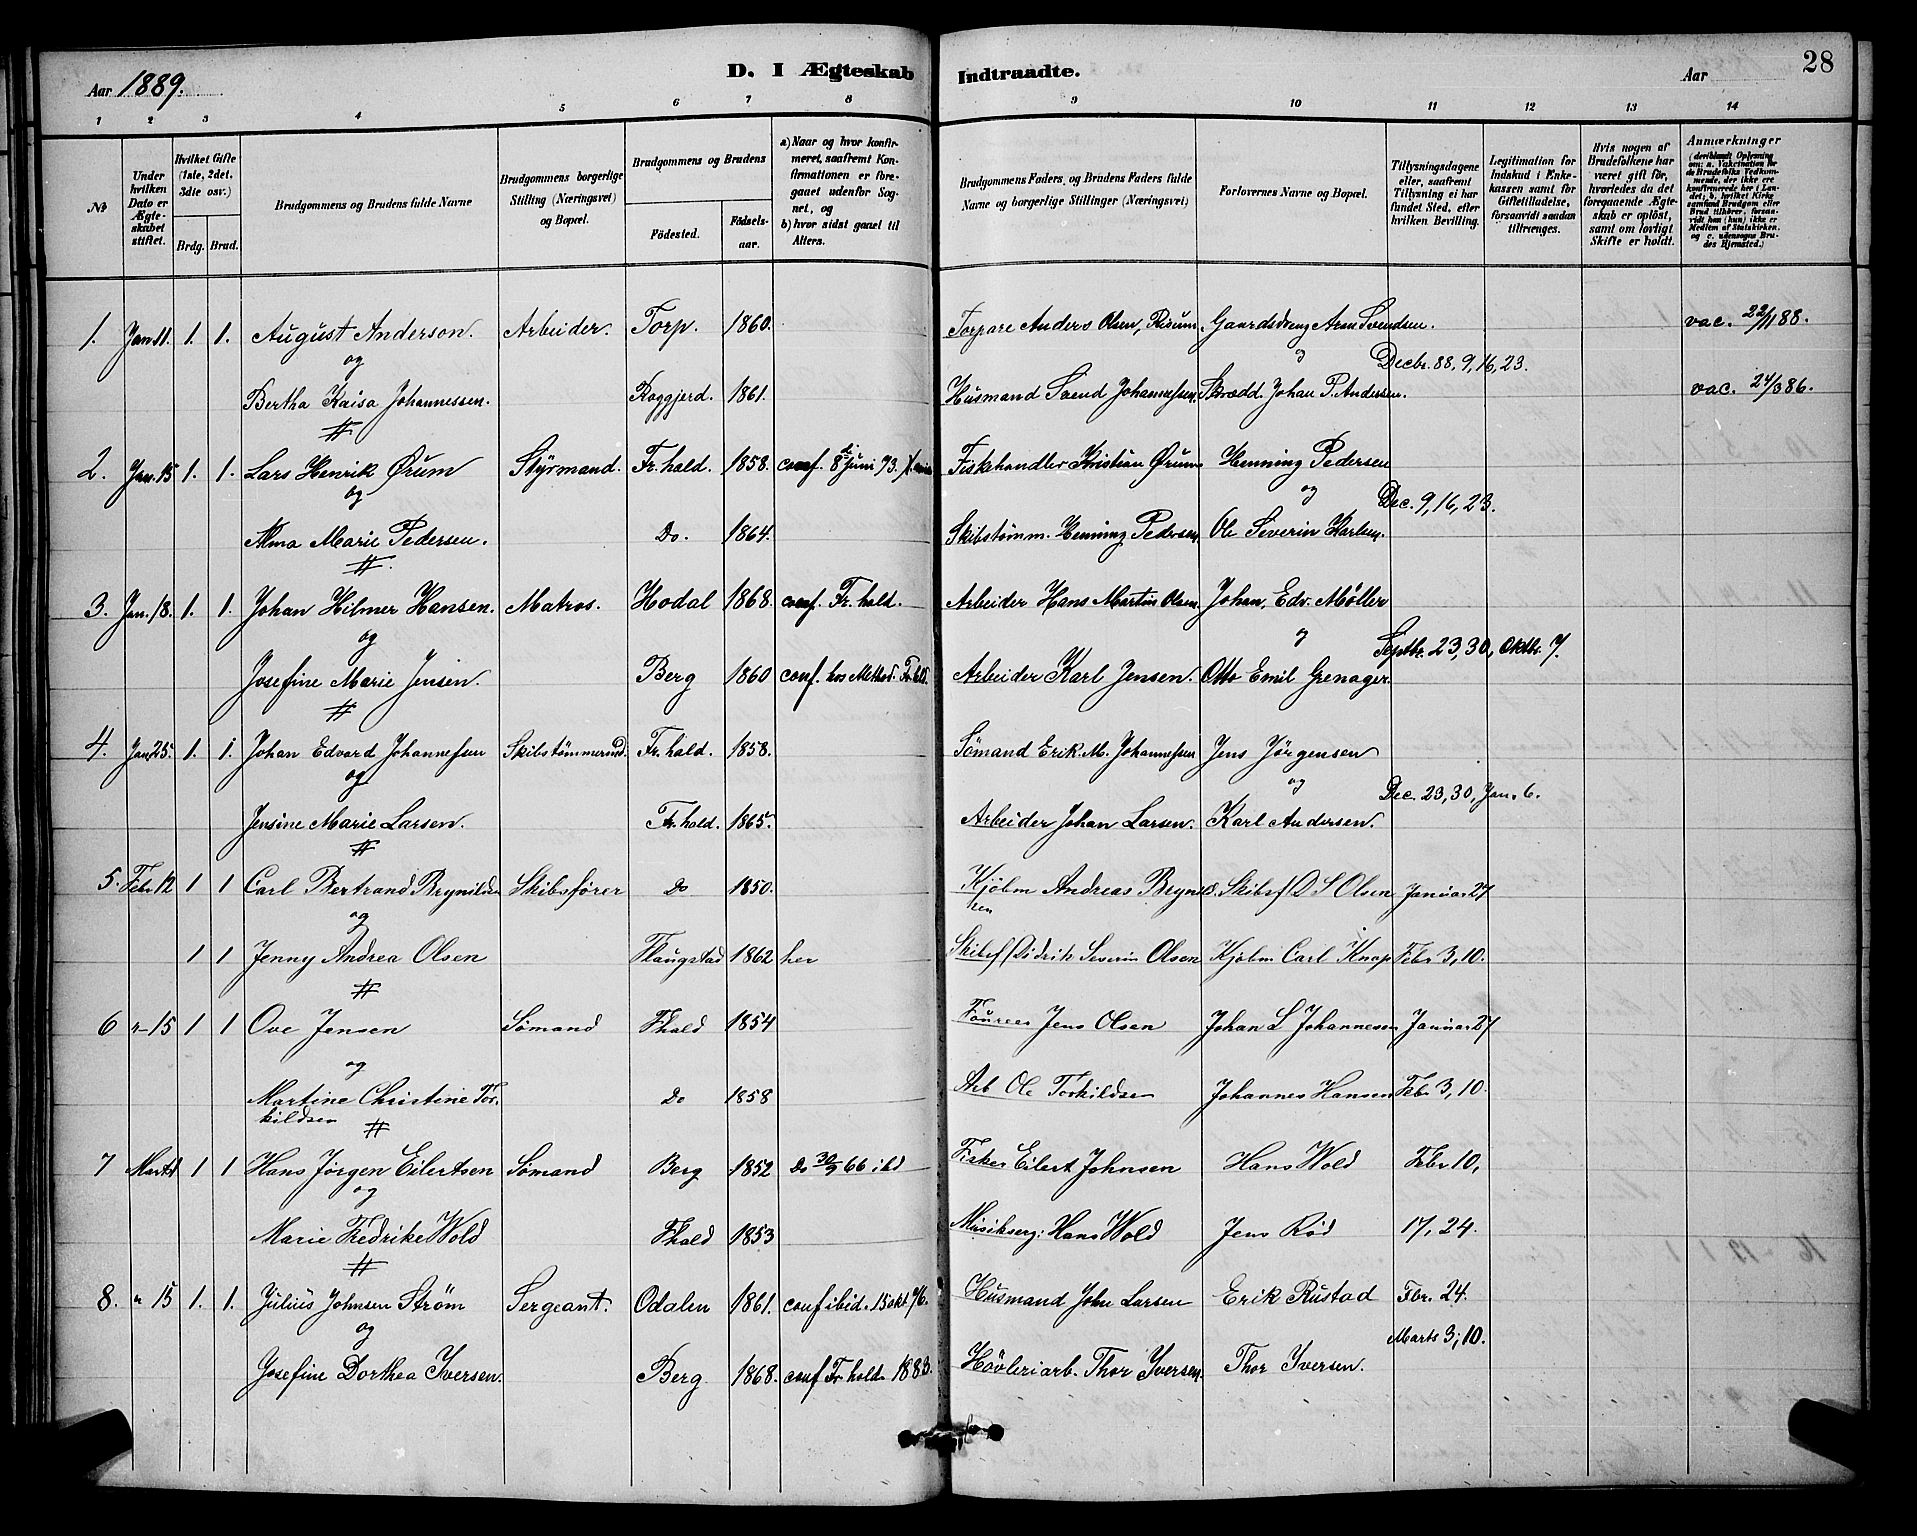 Aar 1889.
D. I Ægteskab Indtraadte.
Aar
28
1 2 3 4 5 6 7 8 9 10 11 12 13 14
№
Under hvilken Dato er Ægteskabet stiftet.
Hvilket Gifte (1ste, 2det, 3die osv.)
Brdg. Brud.
Brudgommens og Brudens fulde Navne
Brudgommens borgerlige Stilling (Næringsvei) og Bopæl.
Brudgommens og Brudens
Fødested.
Fødselsaar.
a) Naar og hvor konfirmeret, saafremt Konfirmationen er foregaaet udenfor Sognet, og
b) hvor sidst gaaet til Alters.
Brudgommens Faders, og Brudens Faders fulde Navne og borgerlige Stillinger (Næringsvei)
Forlovernes Navne og Bopæl.
Tillysningsdagene eller, saafremt Tillysning ei har fundet Sted, efter hvilken Bevilling.
Legitimation for Indskud i Enkekassen samt for Giftetilladelse, forsaavidt saadan tiltrænges.
Hvis nogen af Brudefolkene har været gift før, hvorledes da det foregaaende Ægteskab er opløst, samt om lovligt Skifte er holdt.
Anmærkninger
(deriblandt Oplysning om: a. Vakcination for de Brudefolks Vedkommende, der ikke ere konfirmerede her i Landet; b. hvilket Kirkesamfund Brudgom eller Brud tilhører, forsaavidt han (hun) ikke er Medlem af Statskirken, og c. udensogns Brudes Hjemsted.)
1. Jan 11. 1. 1. August Anderson. Arbeider. Torp. 1860. Torpare Anders Olsen, Risum Gaardsdreng Aron Svendsen. vac. 22/1 88.
og og Decbr. 88. 9, 16, 23.
Bertha Kaisa Johannessen. Roggjerd. 1861. Husmand Svend Johannessen. Skrædd. Johan P. Andersen. vac. 24/3 86.
2. Jan. 15 1. 1. Lars Henrik Ørum Styrmand. Fr.hald. 1858. conf. 8de Juni 73. Fiskehandler Kristian Ørum Henning Pedersen
og og Dec. 9, 16, 23.
Alma Marie Pedersen. Do. 1864. Skibstømm. Henning Pedersen. Ole Severin Karlsen.
3. Jan. 18. 1. 1. Johan Hilmer Hansen. Matros. Hodal 1868. conf. Fr.hald. Arbeider Hans Martin Olsen. Johan. Edv. Møller
og og Septbr. 23, 30, Oktbr. 7.
Josefine Marie Jensen. Berg 1860 conf. hos Method. Fr.hld. Arbeider Karl Jensen. Otto Emil Grenager.
4. Jan 25. 1. 1. Johan Edvard Johannessen Skibstømmermd. Fr.hald. 1858. Sömand Erik. M. Johannessen Jens Jørgensen
og og Dec. 23, 30, Jan. 6.
Jensine Marie Larsen. Fr.hald. 1865. Arbeider Johan Larsen. Karl Andersen.
5. Febr 12 1 1 Carl Bertrand Brynildsen Skibsfører Do 1850. Kjøbm Andreas Brynildsen Skibsf D S Olsen Januar 27
og
1 1 Jenny Andrea Olsen Flaugstad 1862 her Skibsf Didrik Severin Olsen Kjøbm Carl Knap Febr 3, 10.
6 " 15 1 1 Ove Jensen Sømand Fhald 1854 Jens Olsen Johan L Johannesen Januar 27
og
Martine Christine Torkildsen Do 1858 Arb Ole Torkildsen Johannes Hansen Febr 3, 10.
7 Marts 1 1 1 Hans Jørgen Eilertsen Sømand Berg 1852 Do 30/9 66 ibd Fisker Eilert Johnsen Hans Wold Febr 10,
og
Marie Fredrike Wold Fhald 1853 Musikserg: Hans Wold Jens Rød 17, 24.
8. " 15 1. 1. Julius Johnsen Strøm Sergeant. Odalen 1861. conf ibid. 15 okt 76. Husmand John Larsen Erik Rustad Fbr. 24.
og Marts 3, 10.
Josefine Dorthea Iversen. Berg. 1868. conf Fr.hald. 1883. Høvleriarb. Thor Iversen. Thor Iversen.